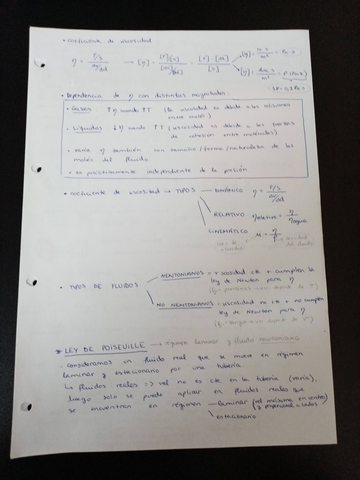 • coeficiente de viscosidad
η = F/S
→ [η] = = [F]·[dt] / [S] → [η] = N·s / m² = Pa·s
• Dependencia de η con distintas magnitudes:
• Gases ↑ η cuando ↑T (la viscosidad es debida a las colisiones entre moléc)
• Líquidos ↓ η cuando ↑T (viscosidad es debida a las fuerzas de cohesión entre moléculas)
• varía η también con tamaño/forma/naturaleza de las moléc del fluido
• es prácticamente independiente de la presión
• coeficiente de viscosidad → TIPOS — DINÁMICO η = F/S
RELATIVO η relativa = η / η agua
CINEMÁTICO = η / ρ → densidad del fluido
• TIPOS DE FLUIDOS
NEWTONIANOS = viscosidad cte + cumplen la ley de Newton para η
NO NEWTONIANOS = viscosidad no cte + no cumplen ley de Newton para η
* LEY DE POISEUILLE → régimen laminar y fluido newtoniano
· Consideramos un fluido real que se mueve en régimen
laminar y estacionario por una tubería
La fluidos reales => vel no es cte en la tubería (varía),
luego solo se puede aplicar en fluidos reales que
se encuentren en régimen — laminar (vel máxima en centro)
ESTACIONARIO